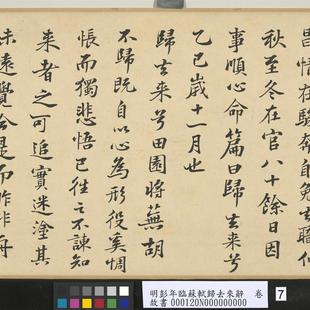 昌情在駿奔自免去職仲
秋至冬在官八十餘日因
事順心命篇曰歸去来兮
乙巳歲十一月也
歸去来兮田園將蕪胡
不歸既自以心為形役奚惆
悵而獨悲悟已往之不諫知
来者之可追實迷塗其
未遠覺今是而昨非舟
明彭年臨蘇軾歸去來辭 卷
故書000120N000000000
7